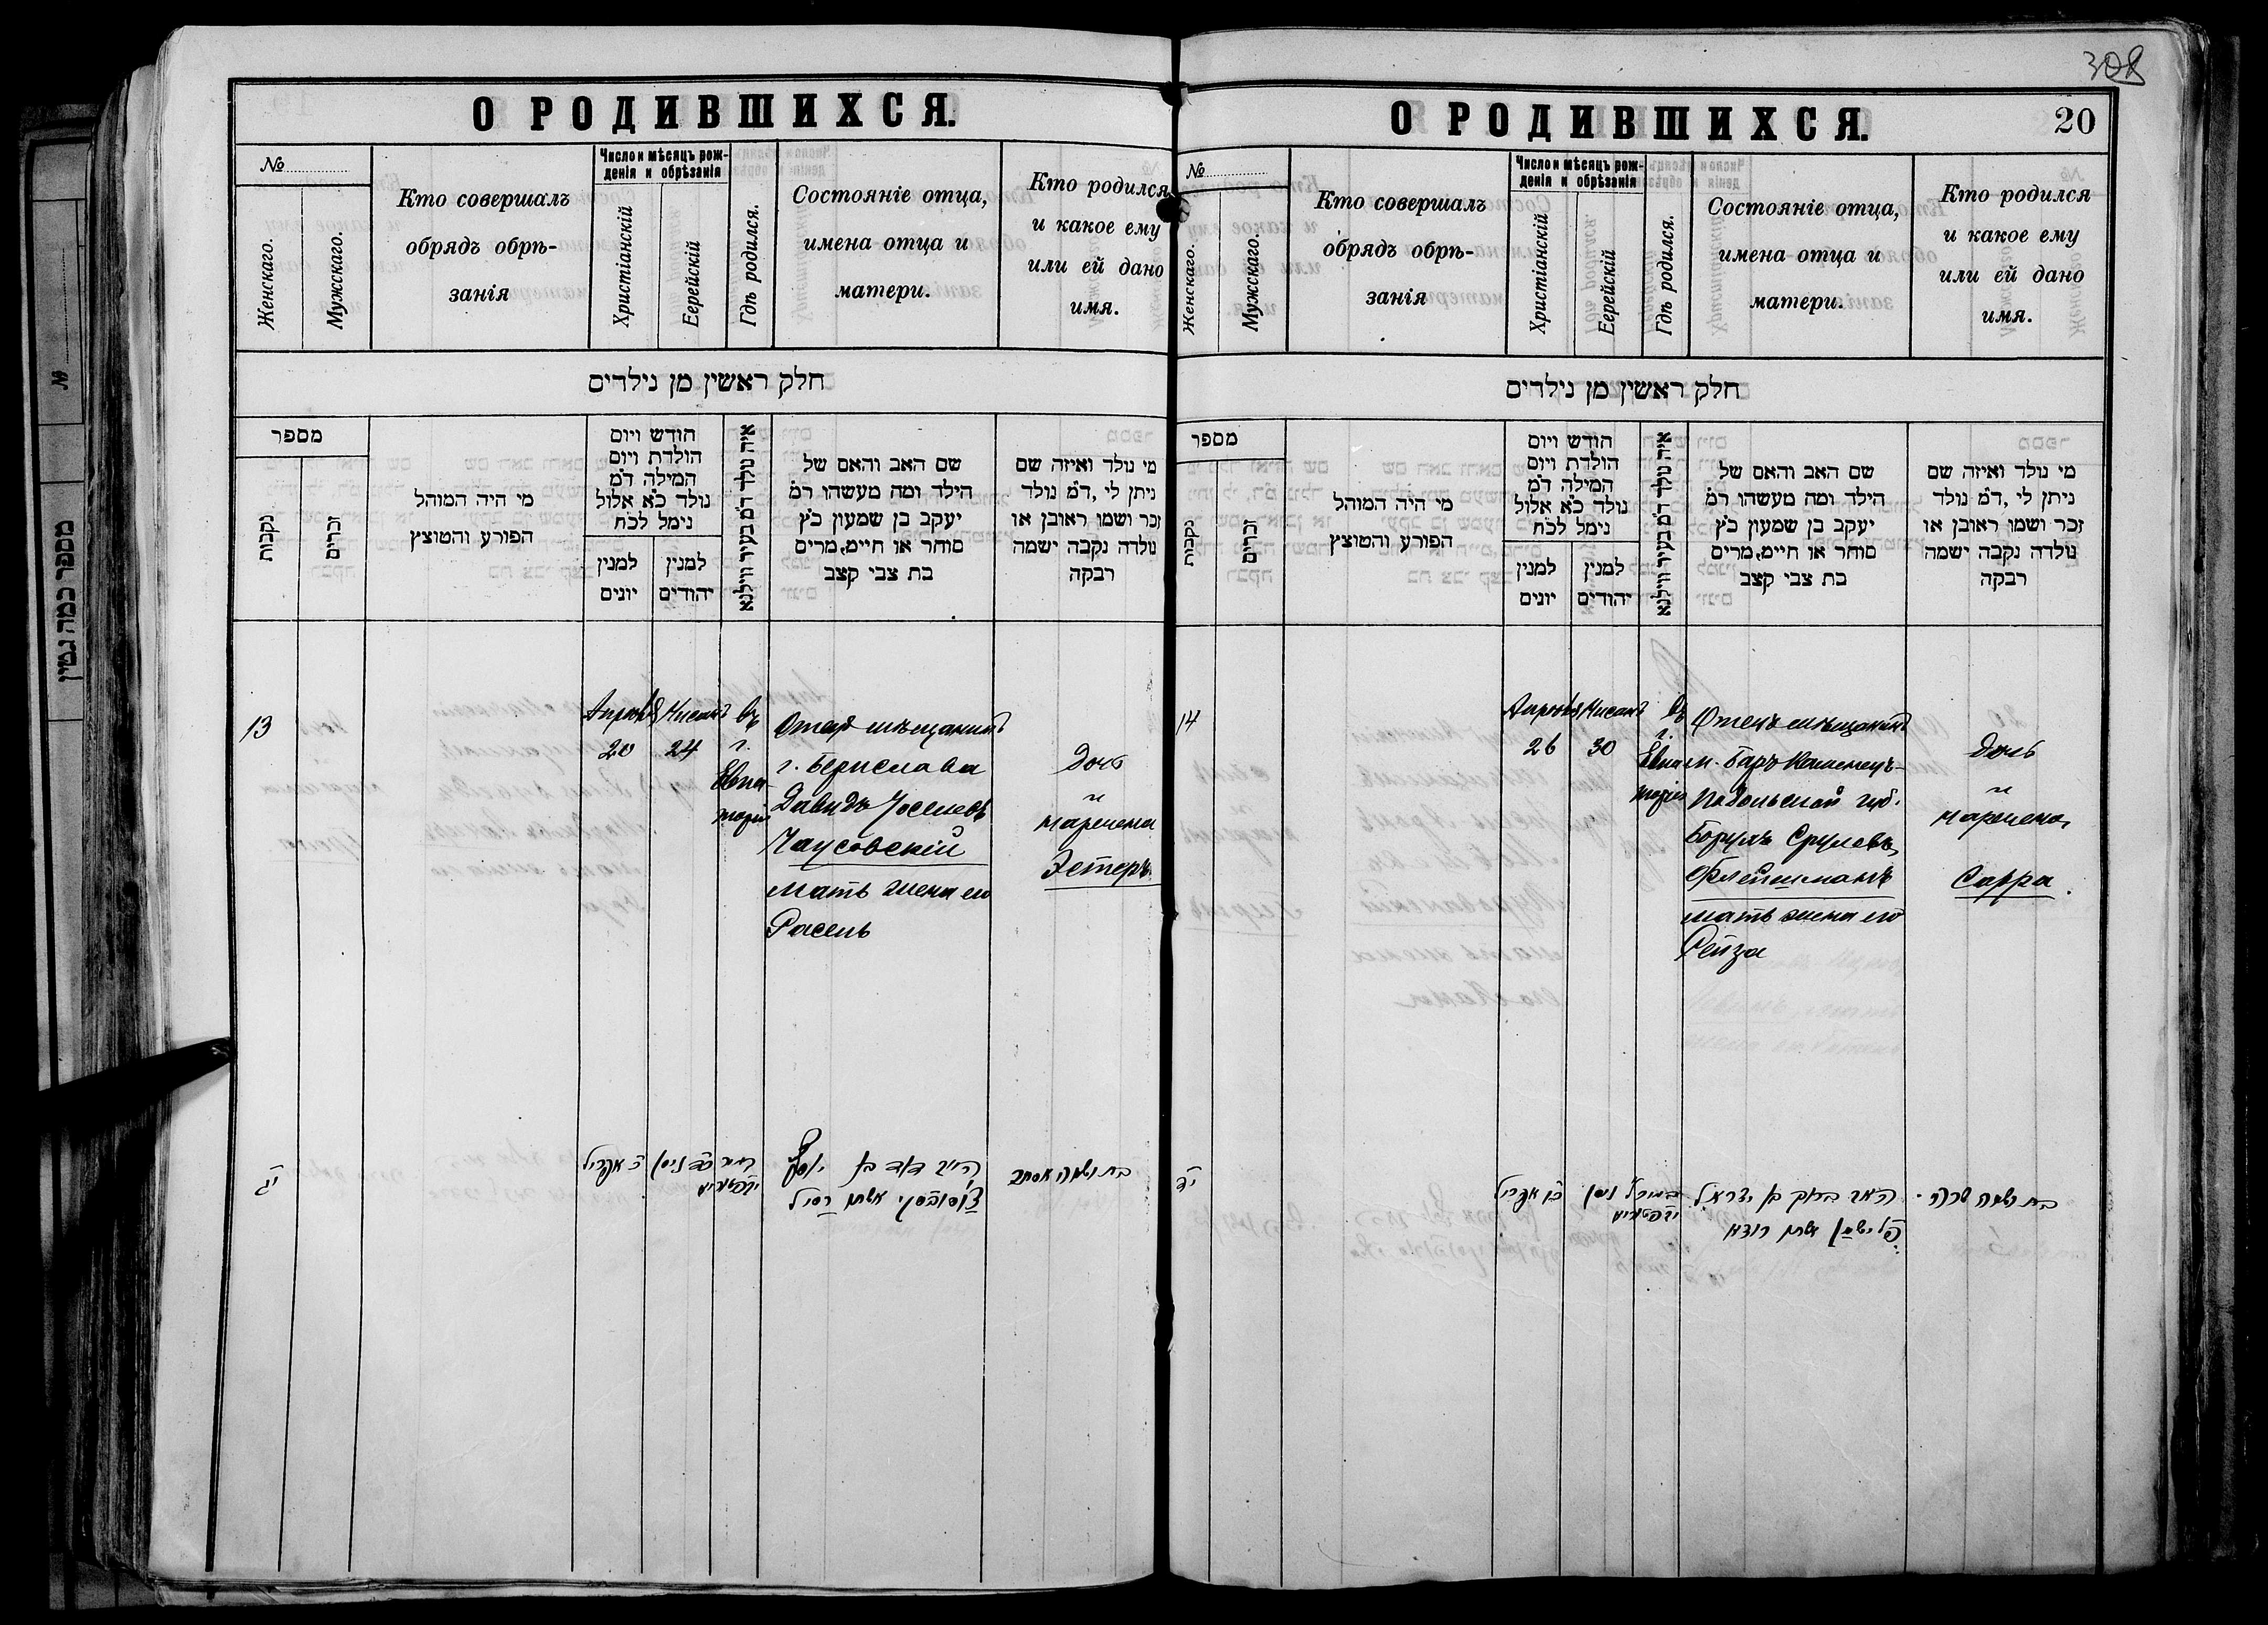 О РОДИВШИХСЯ.
№
Женскаго.
Мужскаго.
Кто совершалъ
обрядъ обрѣ-
занія
Число и мѣсяцъ рож-
денія и обрѣзанія
Христіанскій
Еерейскій
Гдѣ родился.
Состояніе отца,
имена отца и
матери.
Кто родился
и какое ему
или ей дано
имя.
חלק ראשין מן נילדים
מספר
נקבות
זכרים
מי היה המוהל
הפורע והטוצץ
חודש ויום
הולדת ויום
המילה ד״מ
נולד כ״א אלול
נימל לכ״ח
למנין
יונים
למנין
יהודים
איה נולד ד״מ בעיר ווילנא
שם האב והאם של
הילד ומה מעשהו ר״מ
יעקב בן שמעון כ״ץ
סוחר או חיים, מרים
בת צבי קצב
מי נולד ואיזה שם
ניתן לי, ד״מ נולד
זכר ושמו ראובן או
נולדה נקבה ישמה
רבקה
13
Апрѣля
20
Нисанъ
24
въ
г.
Евпа-
торіи
Отецъ мѣщанинъ
г. Берислава
Давидъ Іосиевъ
Чаусовскій
мать жена его
Рисель
Дочь
и
наречена
Эстеръ
י״ג
כ׳ אפריל
כ״ד ניסן
יעפטוריא
דוד בן יוסף
אשתו רסיל
בת ושמה אסתר
308
20
О РОДИВШИХСЯ.
№
Женскаго.
Мужскаго.
Кто совершалъ
обрядъ обрѣ-
занія
Число и мѣсяцъ рож-
денія и обрѣзанія
Христіанскій
Еерейскій
Гдѣ родился.
Состояніе отца,
имена отца и
матери.
Кто родился
и какое ему
или ей дано
имя.
חלק ראשין מן נילדים
מספר
נקבות
זכרים
מי היה המוהל
הפורע והטוצץ
חודש ויום
הולדת ויום
המילה ד״מ
נולד כ״א אלול
נימל לכ״ח
למנין
יונים
למנין
יהודים
איה נולד ד״מ בעיר ווילנא
שם האב והאם של
הילד ומה מעשהו ר״מ
יעקב בן שמעון כ״ץ
סוחר או חיים, מרים
בת צבי קצב
מי נולד ואיזה שם
ניתן לי, ד״מ נולד
זכר ושמו ראובן או
נולדה נקבה ישמה
רבקה
14
Апрѣля
26
Нисанъ
30
въ
г.
Евпа
торіи
Отецъ мѣщанинъ
м. Баръ Каменецъ-
Подольской губ.
Борухъ Срулевъ
Флейшманъ
мать жена его
Рейза
Дочь
и
наречена
Сарра.
י״ד
כ״ו אפריל
ל׳ ניסן
יעפטוריא
ברוך בן ישראל
פלישמן אשתו רוזא
בת ושמה שרה
מספר כמה גטין
№